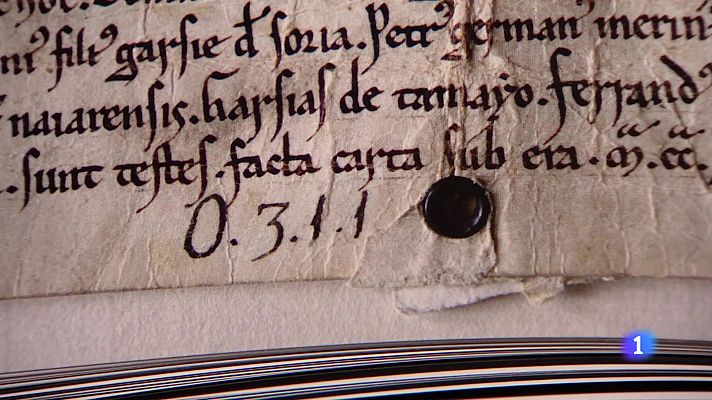 filiꝰ garsie đ soria. Petrꝰ germanꝰ merinꝰ
naiarensis. Garsias de tamayo. ferrandꝰ
. sunt testes. facta carta sub era. M. CC.
O. 3. 1. 1
1